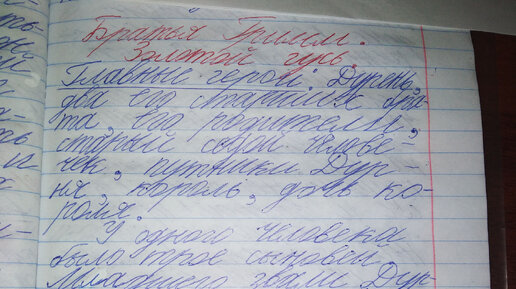 Братья Гримм.
Золотой гусь.
Главные герои: Дурень,
два его старших бра-
та, его родители,
старый седой челове-
чек, путники Дур-
ня, король, дочь ко-
роля.
У одного человека
было трое сыновей.
Младшего звали Дур-